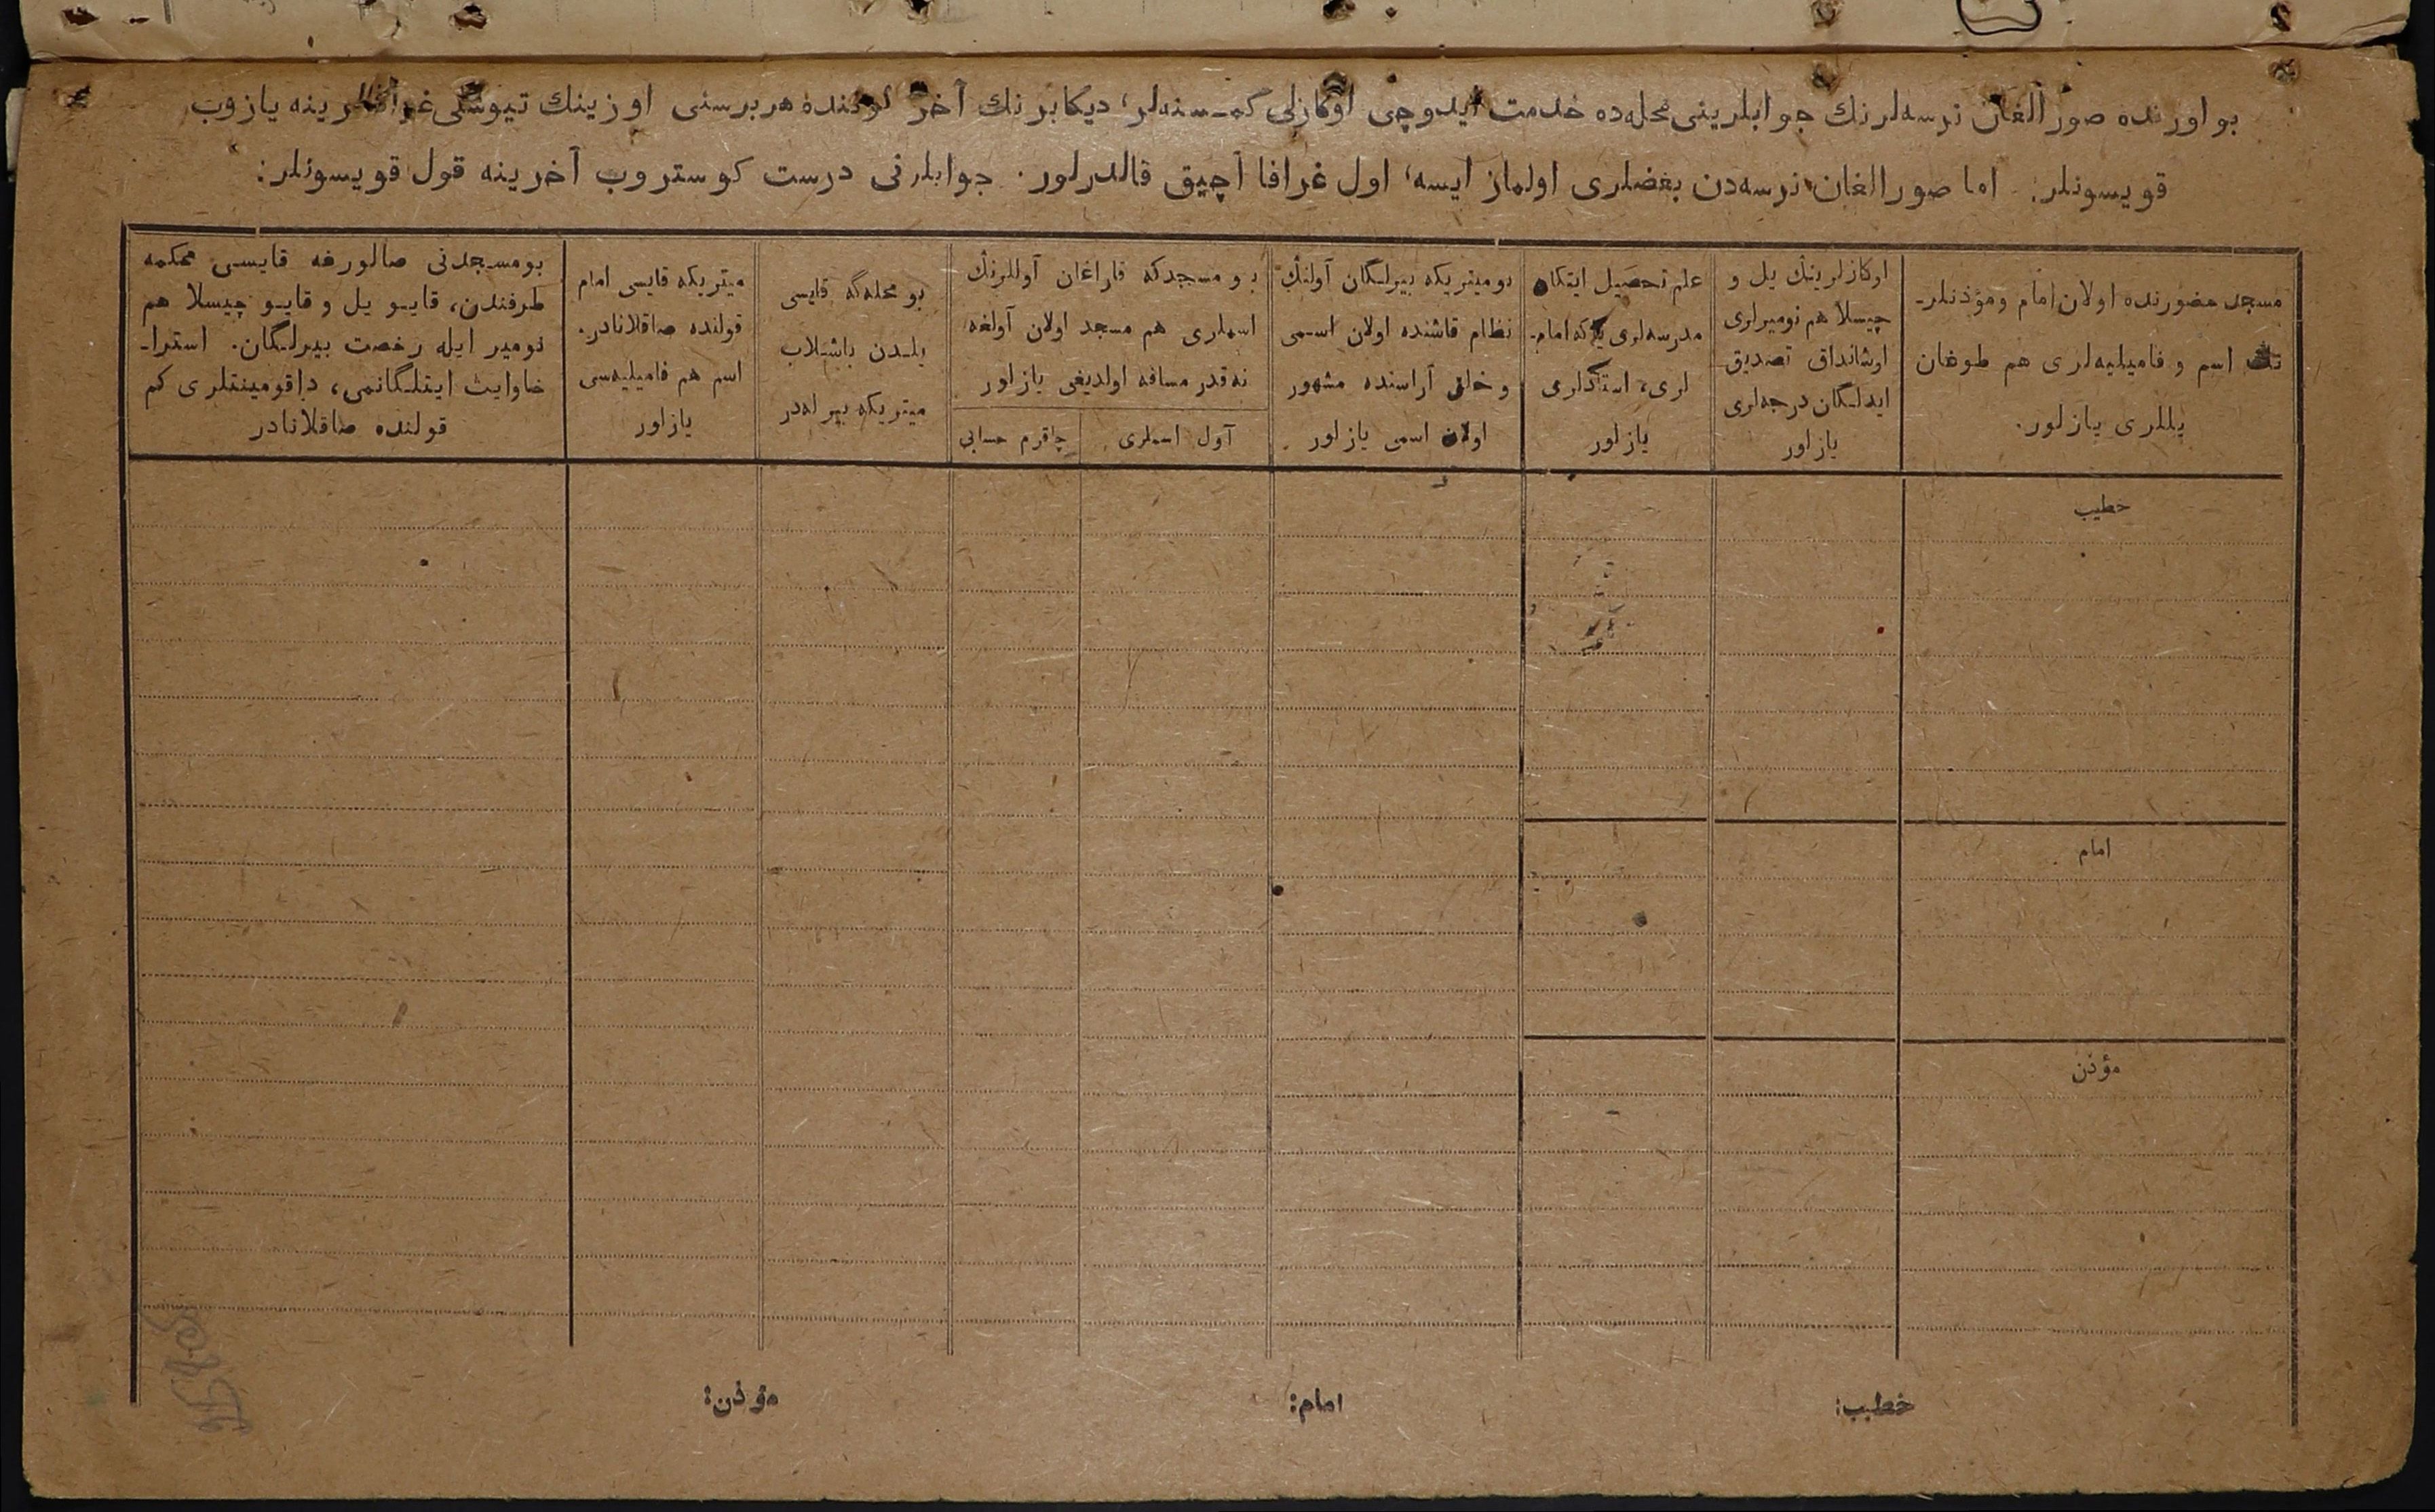 بو اورنده صورالغان نرسه‌لرنك جوابلرینی محله‌ده خدمت ایدوچی اوكازلی كمسنه‌لر، دیكابرنك آخر كوننده هر برسنی اوزینك تیوشلی غرافالرینه یازوب
قویسونلر. اما صورالغان نرسه‌دن بعضلری اولماز ایسه، اول غرافا آچیق قالدرلور. جوابلرنی درست كوستروب آخرینه قول قویسونلر:
مسجد حضورنده اولان امام ومؤذنلر-
نڭ اسم و فامیلیه‌لری هم طوغان
یللری یازلور.
اوكازلرینڭ یل و
چیسلا هم نومیرلری
اوشانداق تصدیق
ایدلـگان درجه‌لری
یازلور
علم تحصیل ایتكان
مدرسه‌لری كه امام-
لری، استاذلری
یازلور
بو میتریكه بیرلـگان آولنڭ
نظام قاشنده اولان اسمی
و خلق آراسنده مشهور
اولان اسمی یازلور
بو مسجدكه قاراغان آوللرنڭ
اسملری هم مسجد اولان آولغه
نه قدر مسافه اولدیغی یازلور
آول اسملری
چاقرم حسابی
بو محله‌گه قایسی
یلـدن باشـلاب
میتریكه بیرله‌در
میتریكه قایسی امام
قولنده صاقلانادر.
اسم هم فامیلیه‌سی
یازلور
بو مسجدنی صالورغه قایسی محكمه
طرفندن، قایو یل و قایو چیسلا هم
نومیر ایله رخصت بیرلـگان. استرا-
خاوایت ایتلـگانمی، داقومینتلری كم
قولنده صاقلانادر
خطیب
امام
مؤذن
خطیب:
امام:
مؤذن: